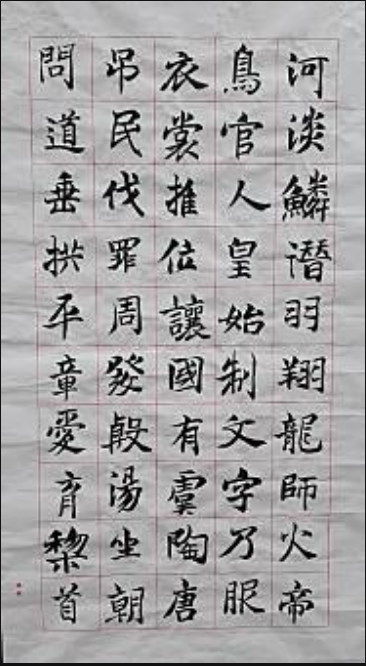 河淡鱗潜羽翔龍師火帝
鳥官人皇始制文字乃服
衣裳推位讓國有虞陶唐
吊民伐罪周發殷湯坐朝
問道垂拱平童愛育黎首